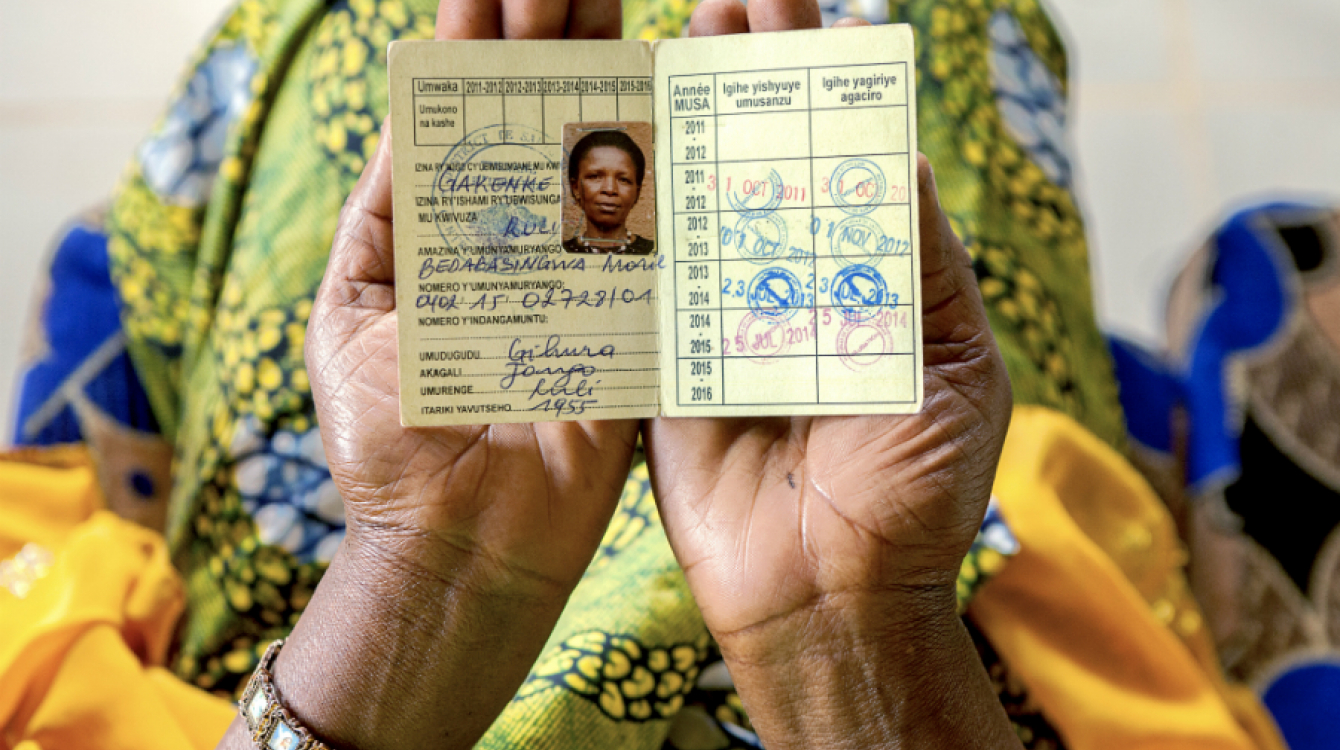 Umwaka 2011-2012 2012-2013 2013-2014 2014-2015 2015-2016
Umukono
na kashe
GAKENKE
IZINA RY'ISHAMI RY'UBWISUNGANE
MU KWIVUZA Ruli
AMAZINA Y'UMUNYAMURYANGO:
BEDABASINGWA
NOMERO Y'UMUNYAMURYANGO:
0402 15 02728/01
NOMERO Y'INDANGAMUNTU:
UMUDUGUDU
AKAGALI
UMURENGE Ruli
ITARIKI YAVUTSEHO 1955
Année MUSA
Igihe yishyuye umusanzu
Igihe yagiriye agaciro
2011 - 2012
2011 - 2012 31 OCT 2011 3 OC 20
2012 - 2013 01 OCT 01 NOV 2012
2013 - 2014 23 23 2013
2014 - 2015 25 JUL 2014 25 JUL 2014
2015 - 2016